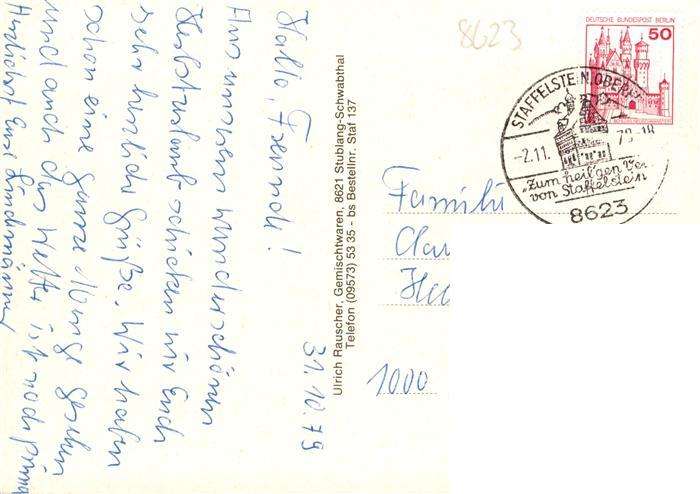 Hallo, Freunde!
31.10.79
Aus unserem wunderschönen
Herbsturlaub schicken wir Euch
sehr herzliche Grüße. Wir haben
schon eine ganze Menge gesehen
und auch das Wetter ist noch prima
Herzlichst Eure
Ulrich Rauscher, Gemischtwaren, 8621 Stublang-Schwabthal
Telefon (09573) 53 35 - bs Bestellnr. Staf 137
8623
DEUTSCHE BUNDESPOST BERLIN
50
STAFFELSTEIN, OBERFR
-2.11. 79-18
"Zum heil'gen Vei
von Staffelstein
8623
Familie
Clau
He
1000